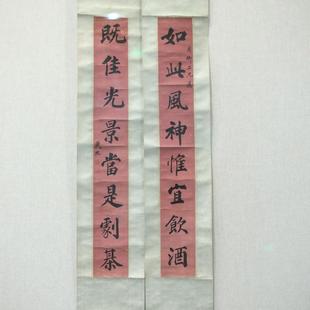 如此風神惟宜飲酒
既佳光景當是劇棊